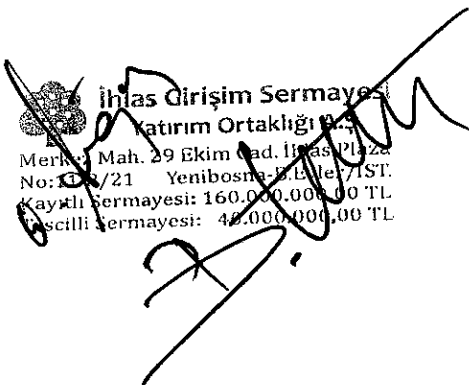 İhlas Girişim Sermayesi
Yatırım Ortaklığı A.Ş.
Merkez Mah. 29 Ekim Cad. İhlas Plaza
/21 Yenibosna-B.Evler/İST.
Kayıtlı Sermayesi: 160.000.000,00 TL
Tescilli Sermayesi: 40.000.000,00 TL